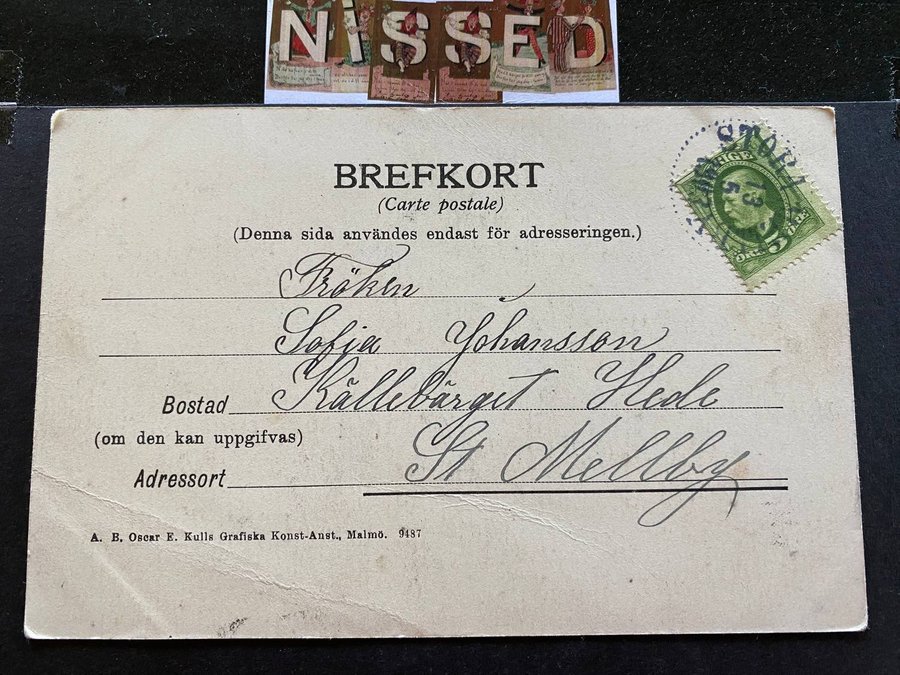 NISSED
BREFKORT
(Carte postale)
(Denna sida användes endast för adresseringen.)
Fröken
Sofia Johansson
Bostad Källebärget Hede
(om den kan uppgifvas)
Adressort St Mellby
A. B. Oscar E. Kulls Grafiska Konst-Anst., Malmö. 9487
STORA
13
5
5
ÖRE